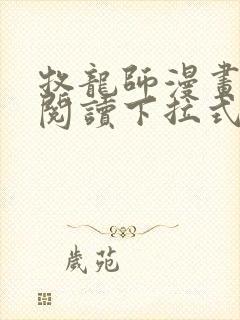 牧龍師漫畫
閱讀下拉式
歲苑